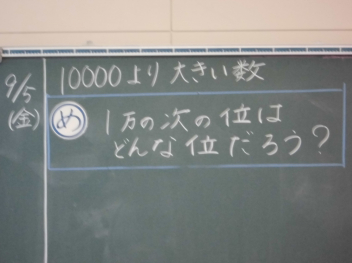 9/5
(金)
10000より大きい数
め
1万の次の位は
どんな位だろう?